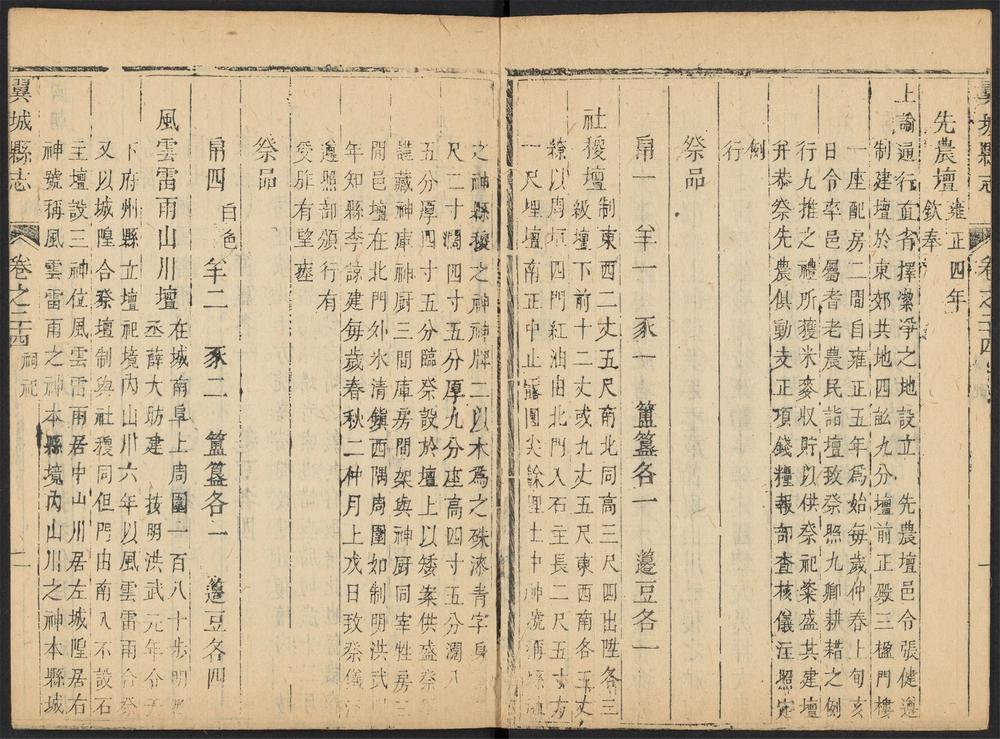 翼城縣志 卷之二十四
先農壇 雍正四年
欽奉
上諭通行直省擇潔淨之地設立 先農壇邑令張健遵
制建壇於東郊共地四畝九分壇前正殿三楹門樓
一座配房二間自雍正五年為始每歲仲春上旬亥
日令率邑屬耆老農民詣壇致祭照九卿耕耤之例
行九推之禮所獲米麥收貯以供祭祀粢盛其建壇
并恭祭先農俱動支正項錢糧報部查核儀注照定
例
行
祭品
帛一 羊一 豕一 簠簋各一 籩豆各一
社稷壇 制東西二丈五尺南北同高三尺四出陛各三
級壇下前十二丈或九丈五尺東西南各三丈
繚以周垣四門紅油由北門入石主長二尺五寸方
一尺埋壇南正中止露圓尖餘埋土中神號稱縣社
之神縣稷之神神牌二以木為之硃漆青字身
尺二寸濶四寸五分厚九分座高四寸五分濶八
五分厚四寸五分臨祭設於壇上以矮案供盛祭
謹藏神庫神厨三間庫房間架與神厨同宰牲房三
間邑壇在北門外氷清鎮西隅周圍如制明洪武
年知縣李諒建每歲春秋二仲月上戊日致祭儀
遵照部頒行有
受胙有望瘞
祭品
帛四 白色 羊二 豕二 簠簋各二 籩豆各四
風雲雷雨山川壇 在城南阜上周圍一百八十步明
丞薛大昉建 按明洪武元年令
下府州縣立壇祀境內山川六年以風雲雷雨合祭
又以城隍合祭壇制與社稷同但門由南入不設石
主壇設三神位風雲雷雨居中山川居左城隍居右
神號稱風雲雷雨之神本縣境內山川之神本縣城
翼城縣志 卷之二十四 祠祀 二